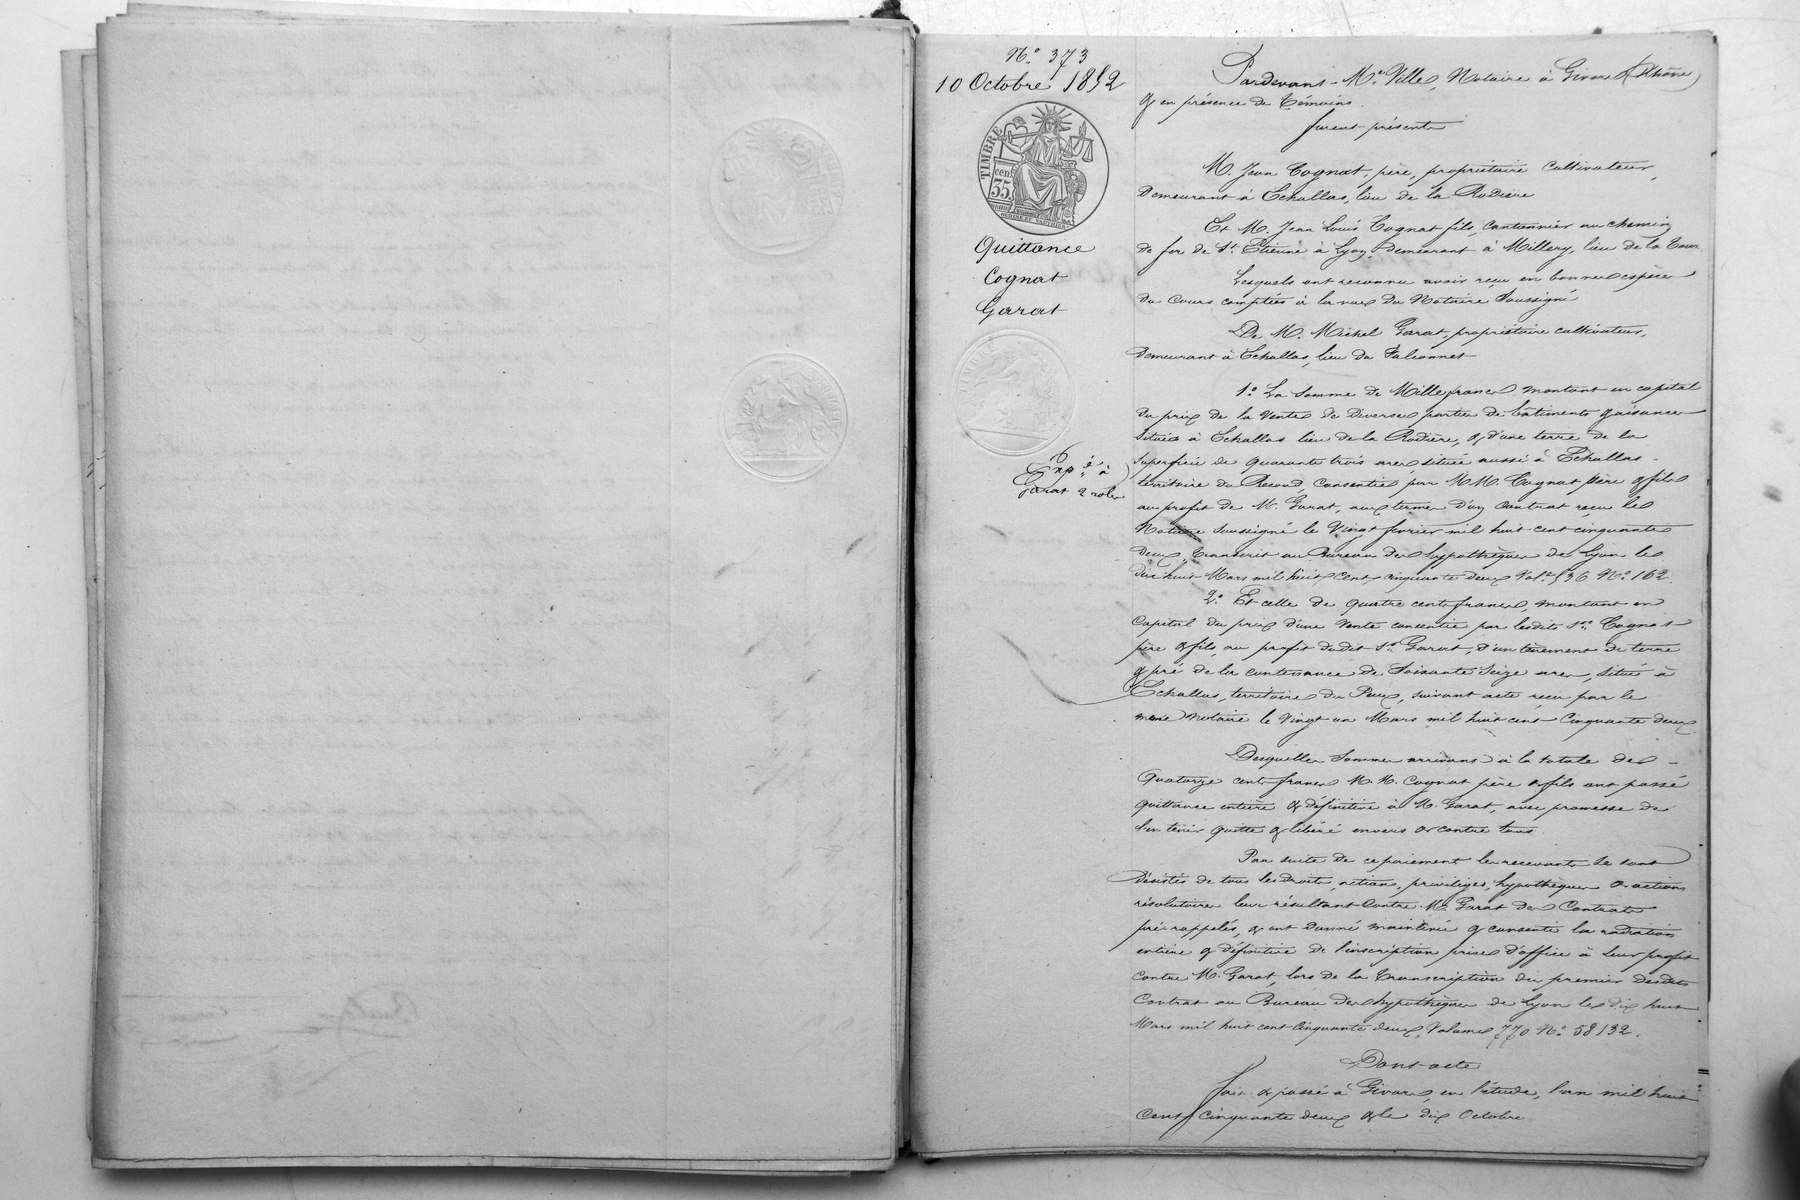 N° 373
10 Octobre 1852
TIMBRE
cen
35
Quittance
Cognat
Garat
Garat 2 roles
Pardevant Me Ville, Notaire à Givors (Rhône)
& en présence de témoins.
furent présents
M. Jean Cognat, père, propriétaire cultivateur,
demeurant à Echallas, lieu de la Rodière
Et M. Jean Louis Cognat fils, cantonnier au chemin
de fer de St. Etienne à Lyon, demeurant à Millery, lieu de la Tour
Lesquels ont reconnu avoir reçu en bonnes espèces
du cours comptées à la vue du Notaire soussigné
De M. Michel Garat, propriétaire cultivateur,
demeurant à Echallas, lieu du Falconnet
1° La somme de Mille francs montant en capital
du prix de la vente de diverses parties de bâtiments & aisances
situées à Echallas lieu de la Rodière, & d'une terre de la
superficie de quarante trois ares située aussi à Echallas
territoire du consentie par MM. Cognat père & fils
au profit de M. Garat, aux termes d'un contrat reçu le
Notaire soussigné le vingt fevrier mil huit cent cinquante
deux, transcrit au Bureau des hypothèques de Lyon le
dix huit Mars mil huit cent cinquante deux Vol. 536 N° 162.
2° Et celle de quatre cents francs, montant en
capital du prix d'une vente consentie par lesdits Srs Cognat
père & fils, au profit dudit Sr Garat, d'un tènement de terre
& pré de la contenance de soixante seize ares, situé à
Echallas, territoire du Puy, suivant acte reçu par le
même notaire le vingt un Mars mil huit cent cinquante deux
Desquelles sommes arrivant à la totale de
quatorze cents francs M.M. Cognat père & fils ont passé
quittance entière & définitive à M. Garat, avec promesse de
l'en tenir quitte & libéré envers & contre tous.
Par suite de ce paiement les recevants se sont
désistés de tous les droits, actions, privilèges, hypothèques & actions
résolutoires leur résultant contre M. Garat des Contrats
pré rappelés, & ont donné mainlevée & consenti la radiation
entière & définitive de l'inscription prise d'office à leur profit
contre M. Garat, lors de la transcription du premier desdits
Contrat au Bureau des hypothèques de Lyon le dix huit
Mars mil huit cent cinquante deux, Volume 770 N° 58132.
Dont acte
Fait & passé à Givors, en l'étude, l'an mil huit
cent cinquante deux & le dix Octobre